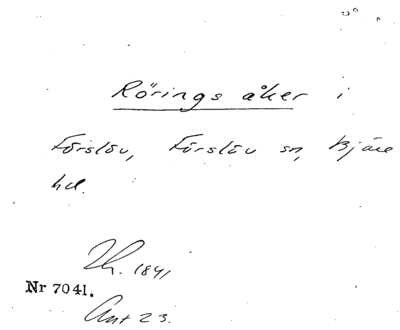 Rörings åker i
Förslöv, Förslöv sn, Bjäre
hd.
Th. 1841
Nr 7041.
Ant 23.